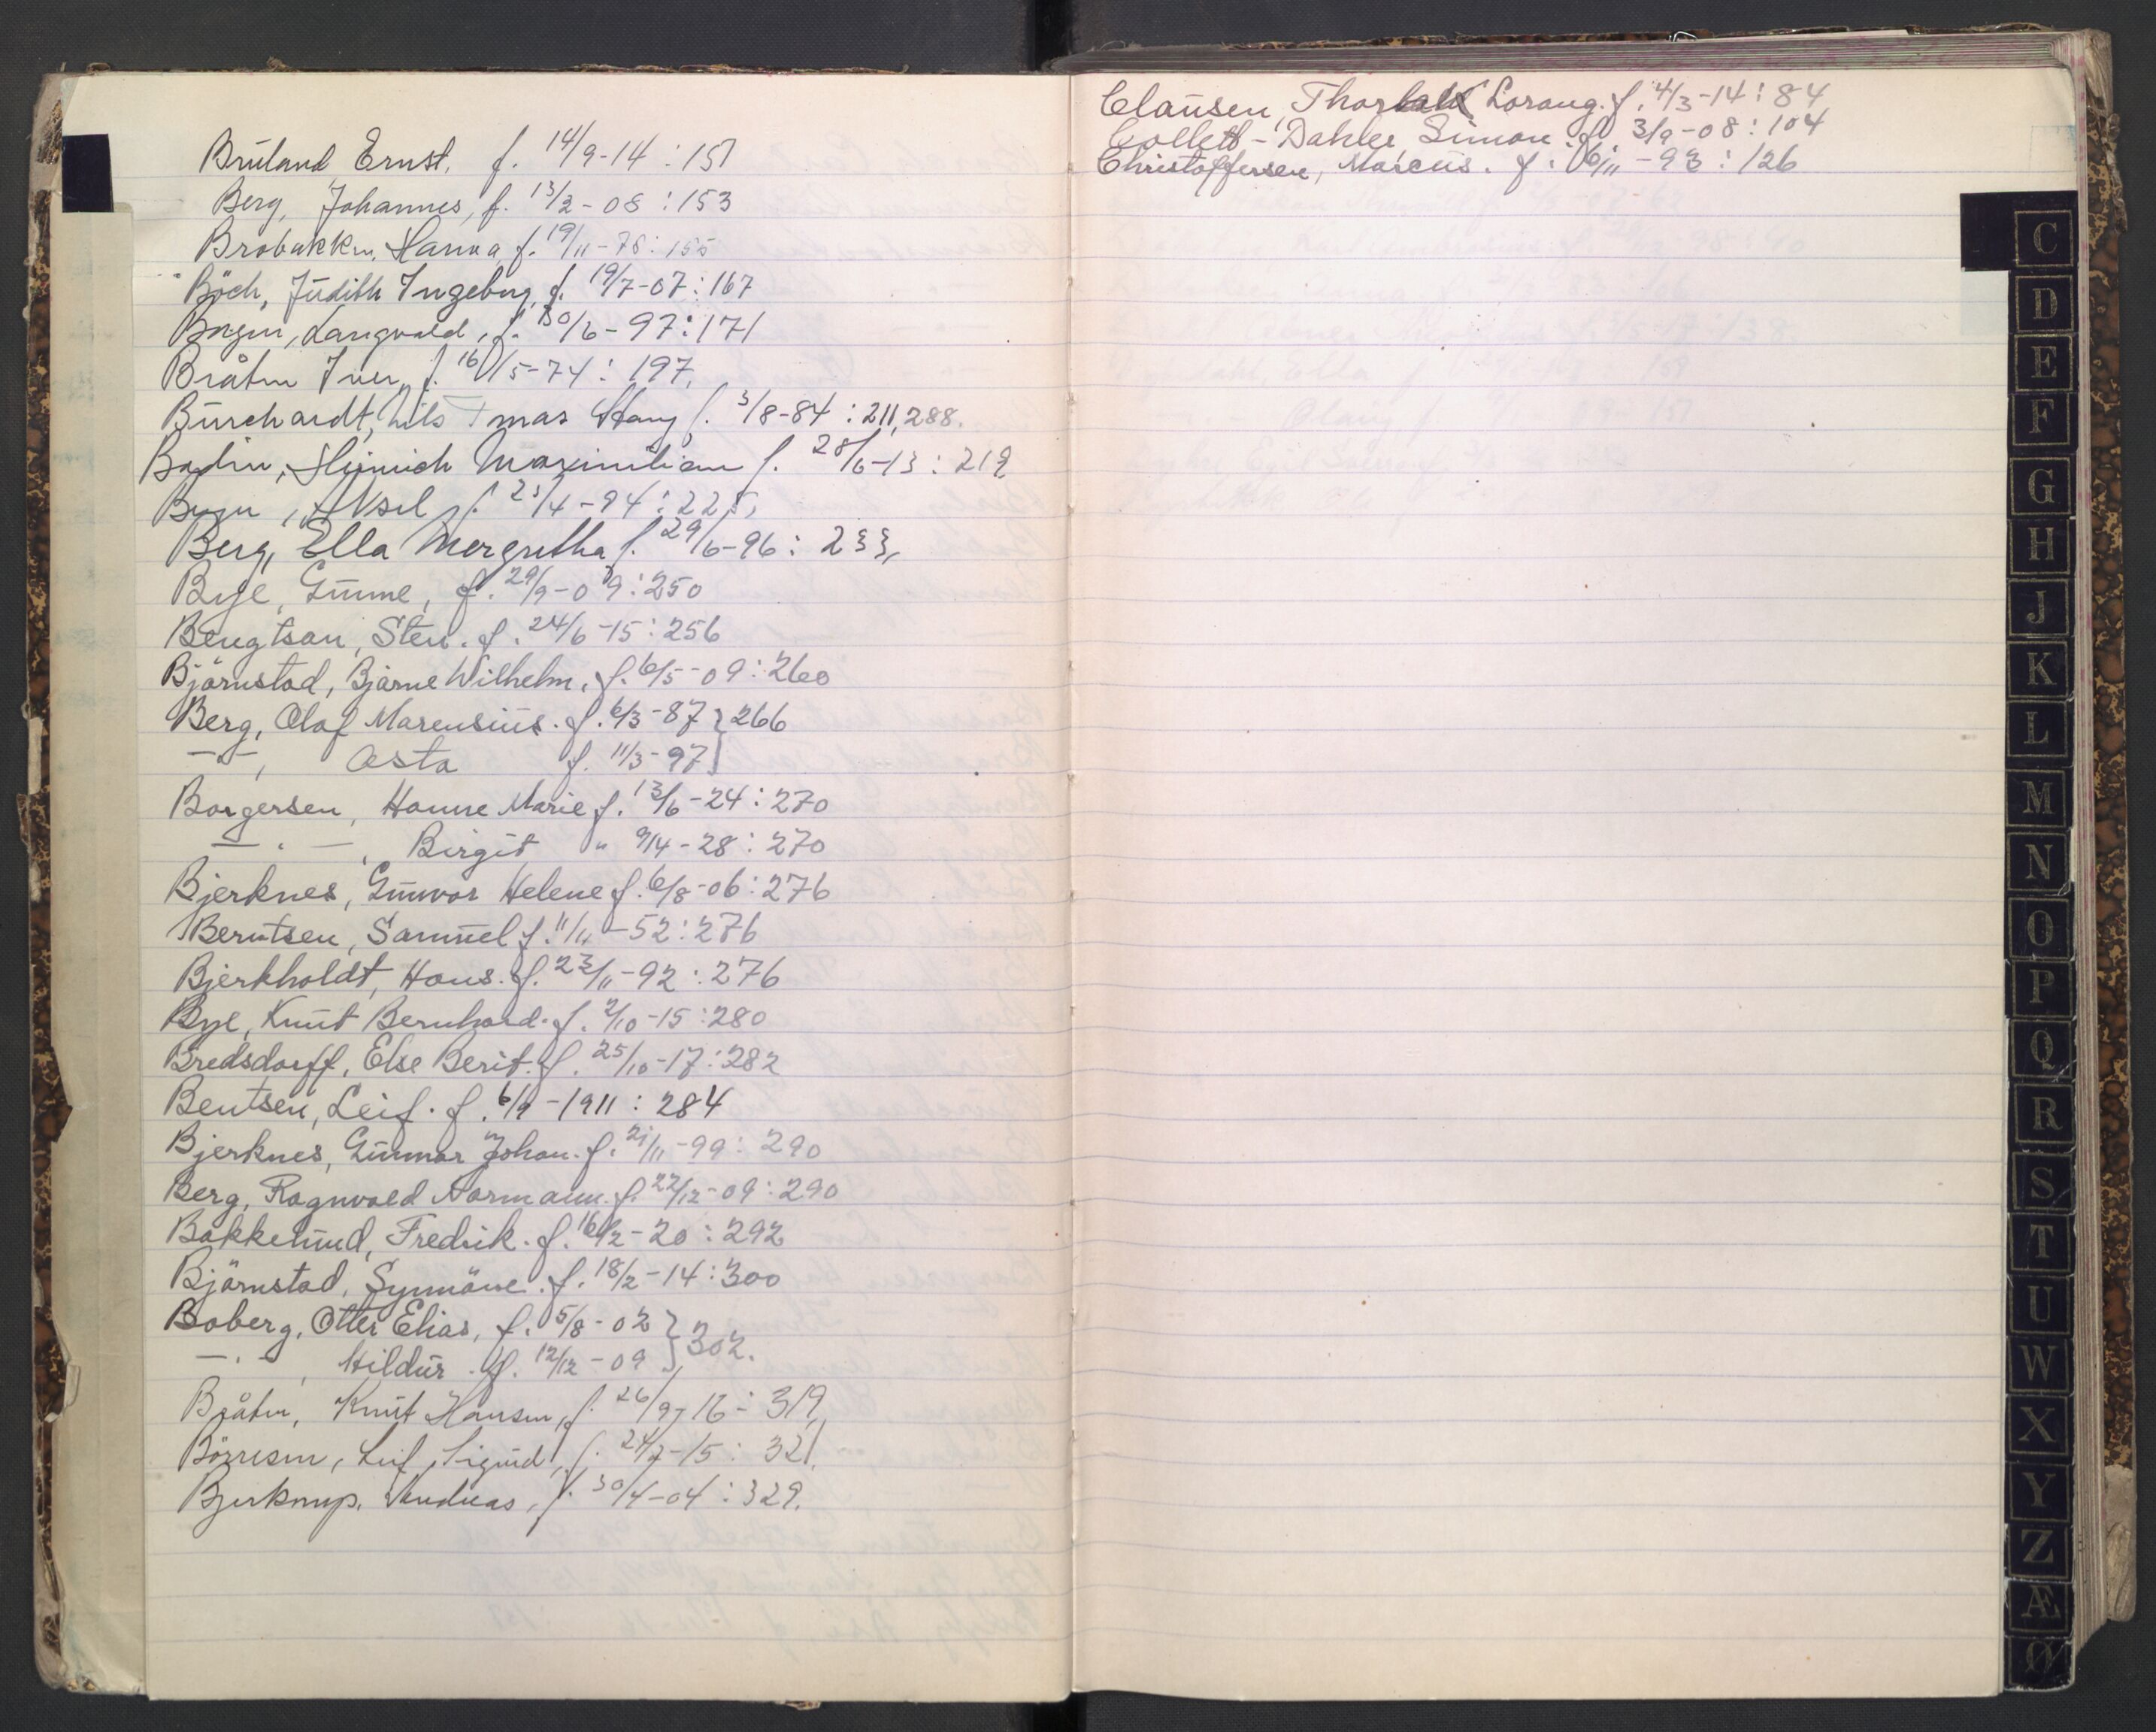 Bruland, Ernst, f. 14/9-14 : 151
Berg, Johannes, f. 13/2-08 : 153
Brobakken, Hanna, f. 19/11-78 : 155
Böch, Judith Ingeborg, f. 19/7-07 : 167
Langvald, f. 30/6-97 : 171
Bråten Iver, f. 16/5-74 : 197.
Burchardt, Nils f. 3/8-84 : 211, 288.
Bodin, Heinrich Maximilian f. 28/6-13 : 219
Aksel f. 23/4-94 : 225,
Berg, Ella Mergretha f. 29/6-96 : 233,
Bye, Gunne, f. 29/9-09 : 250
Bengtson, Sten. f. 24/6-15 : 256
Björnstad, Bjarne Wilhelm, f. 6/5-09 : 260
Berg, Olaf Marensius. f. 6/3-87 } 266
—"—, Asta f. 11/3-97 }
Borgersen, Hanne Marie f. 13/6-24 : 270
—"—, Birgit " 9/4-28 : 270
Bjerknes, Gunvor Helene f. 6/8-06 : 276
Berntsen, Samuel f. 11/11-52 : 276
Bjerkholdt, Hans. f. 23/11-92 : 276
Bye, Knut Bernhard. f. 2/10-15 : 280
Bredsdorff, Else Berit. f. 25/10-17 : 282
Bentsen, Leif. f. 6/9-1911 : 284
Bjerknes, Gunnar Johan. f. 21/11-99 : 290
Berg, Ragnvald Normann. f. 22/12-09 : 290
Bakkerud, Fredrik. f. 16/2-20 : 292
Björnstad, Synnöve. f. 18/2-14 : 300
Boberg, Otter Elias, f. 5/8-02 } 302.
—"—, Hildur. f. 12/12-09 }
Bråten, Knut Hansen, f. 26/9-16 : 319,
Börresen, Leif Sigurd, f. 24/2-15 : 321.
Andreas, f. 30/4-04 : 329.
Clausen, Thorleif Lorang. f. 4/3-14 : 84
Collett-Dahle, Simon f. 3/9-08 : 104
Christoffersen, Marcus. f. 6/11-93 : 126
C
D
E
F
G
H
J
K
L
M
N
O
P
Q
R
S
T
U
W
X
Y
Z
Æ
Ø